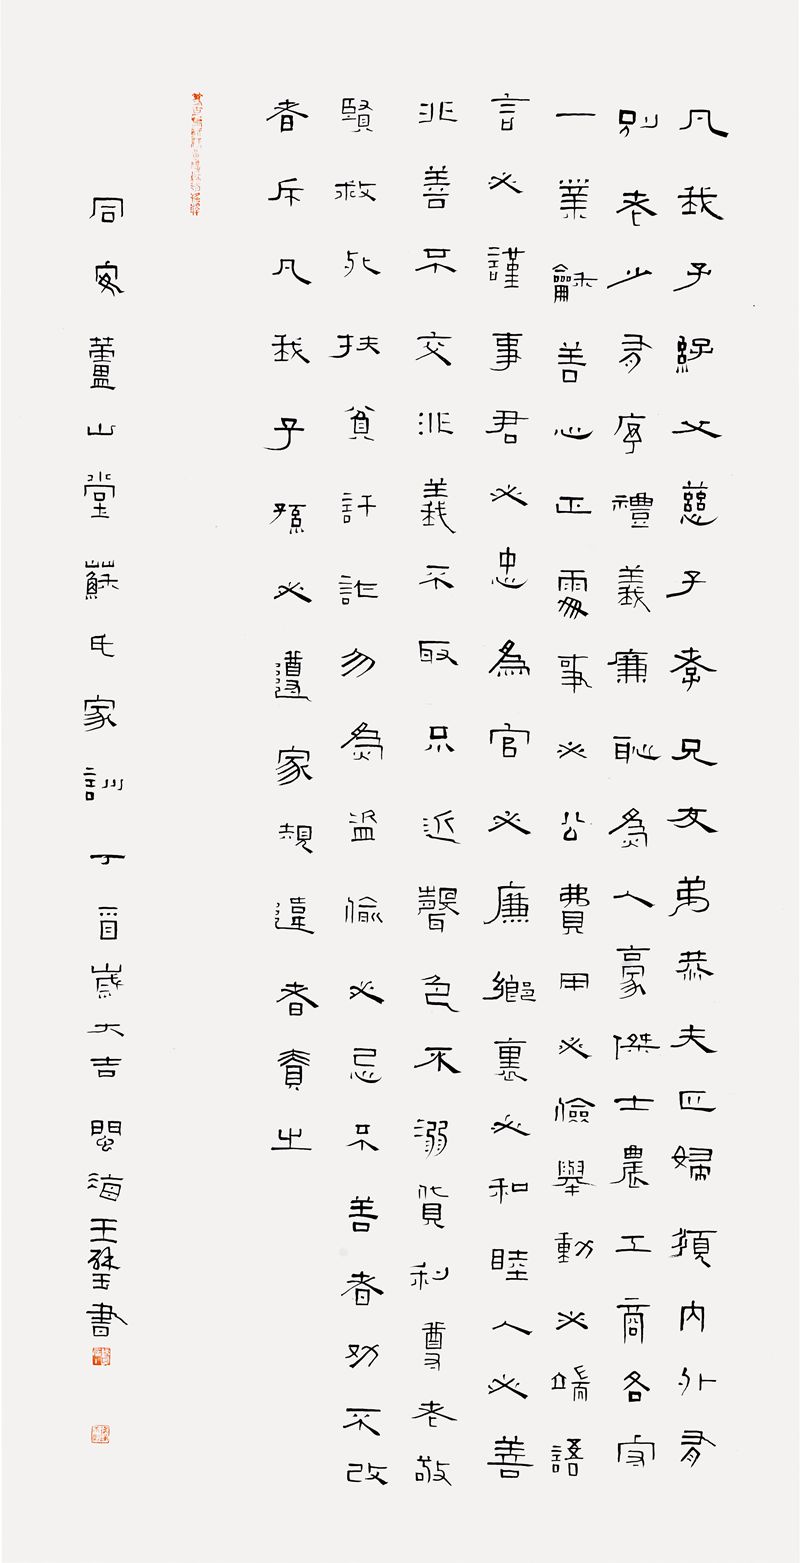 凡我子孫父慈子孝兄友弟恭夫正婦順內外有
別老少有序禮義廉恥為人豪傑士農工商各守
一業龢善心正處事必公費用必儉舉動必端語
言必謹事君必忠為官必廉鄉裏必和睦人必善
非善不交非義不取不近聲色不溺貨利尊老敬
賢救死扶貧訐詐勿為盜偷必忌不善者劝不改
者斥凡我子孫必遵家規違者責之
同安蘆山堂蘇氏家訓丁酉歲大吉閩海王書